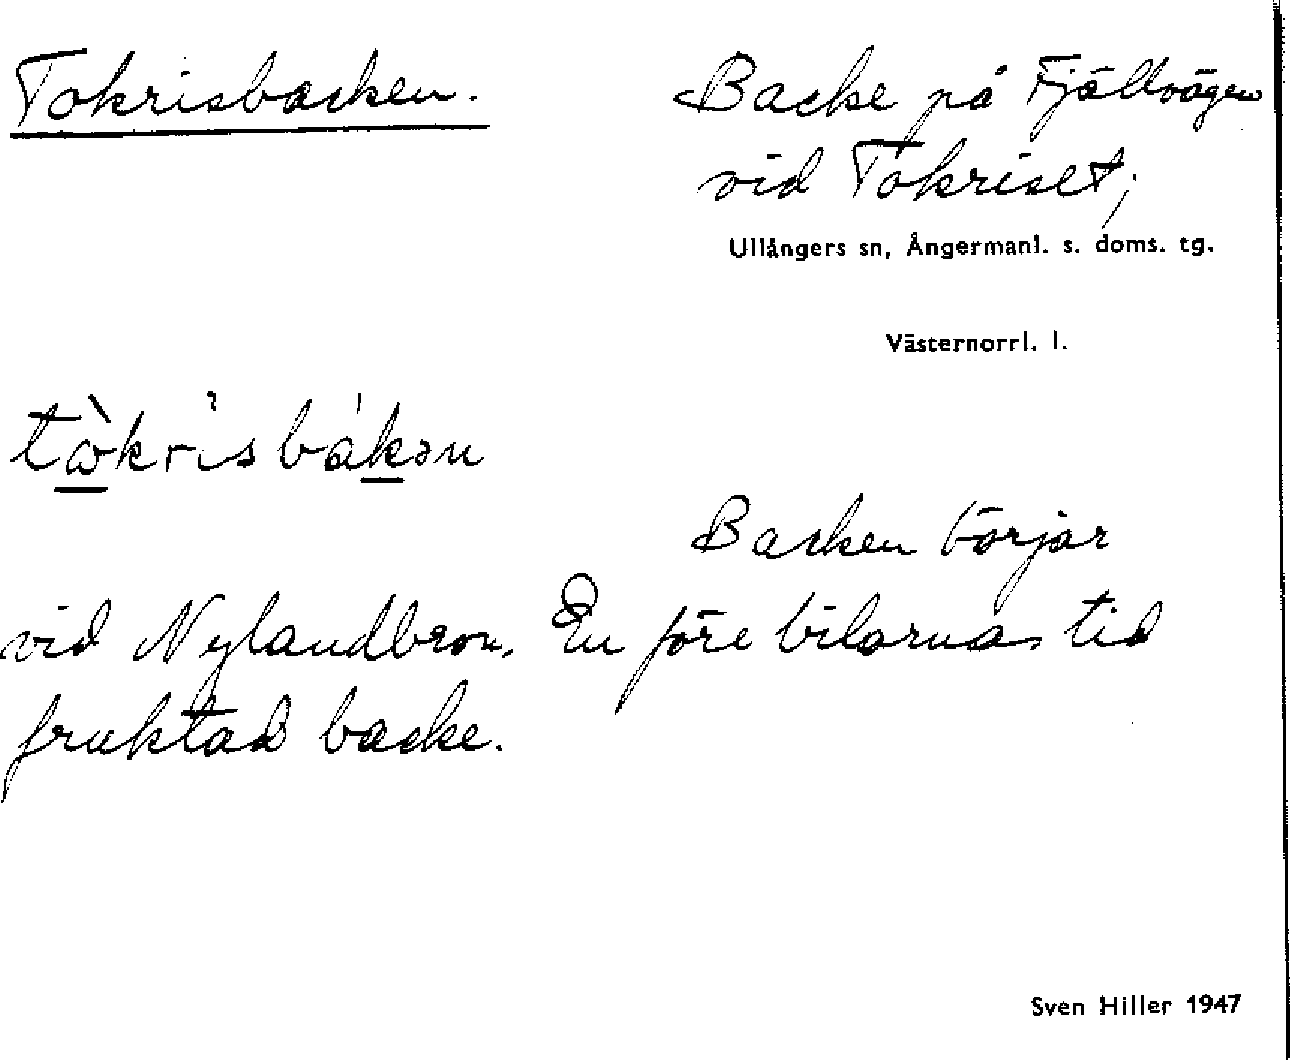 Tokrisbacken.
Backe på Fjällvägen
vid Tokriset;
Ullångers sn, Ångermanl. s. doms. tg.
Västernorrl. l.
tὼkrisbákən
Backen börjar
vid Nylandbron. En före bilarnas tid
fruktad backe.
Sven Hiller 1947